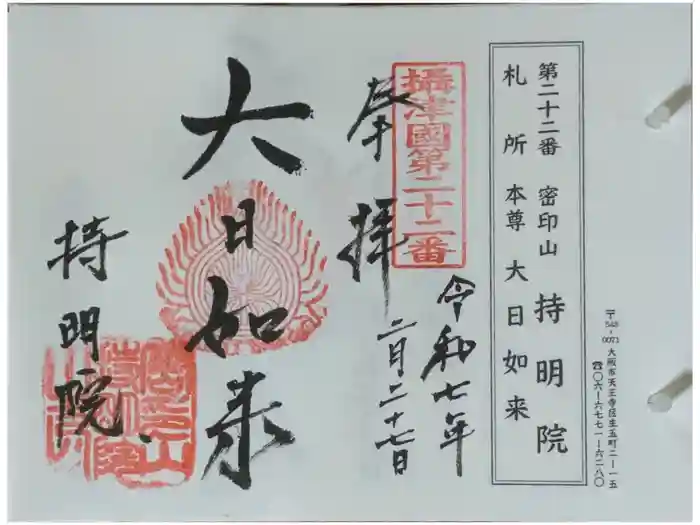 〒543-0071 大阪市天王寺区生玉町二ー一五
☎〇六ー六七七一ー六二八〇
第二十二番 密印山 持明院
札所 本尊 大日如来
攝津國第二十二番
奉拝
令和七年
二月二十七日
大日如来
持明院